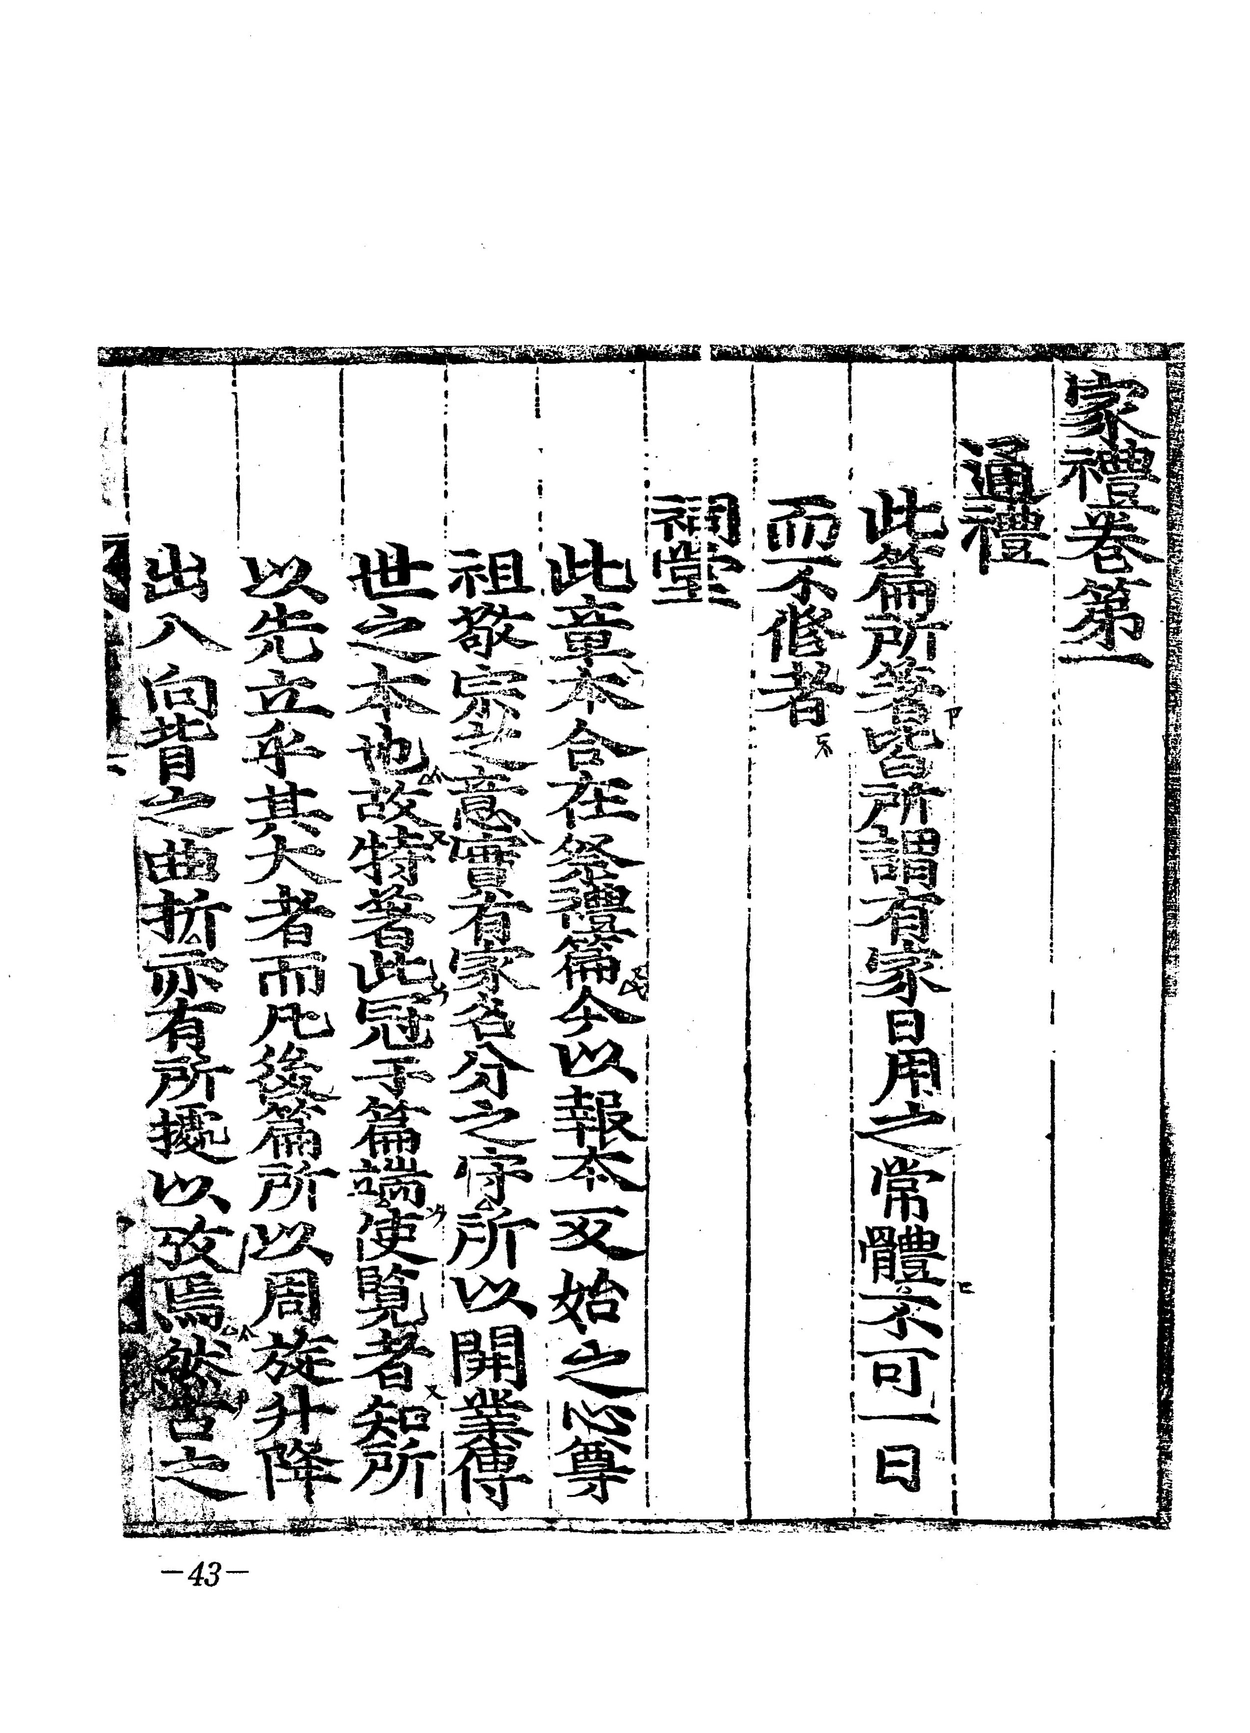 家禮卷第一
通禮
此篇所著皆所謂有家日用之常體不可一日
而不修者
祠堂
此章本合在祭禮篇今以報本反始之心尊
祖敬宗之意實有家名分之守所以開業傳
世之本也故特著此冠于篇端使覽者知所
以先立乎其大者而凡後篇所以周旋升降
出入向背之曲折亦有所據以攷焉然古之
-43-